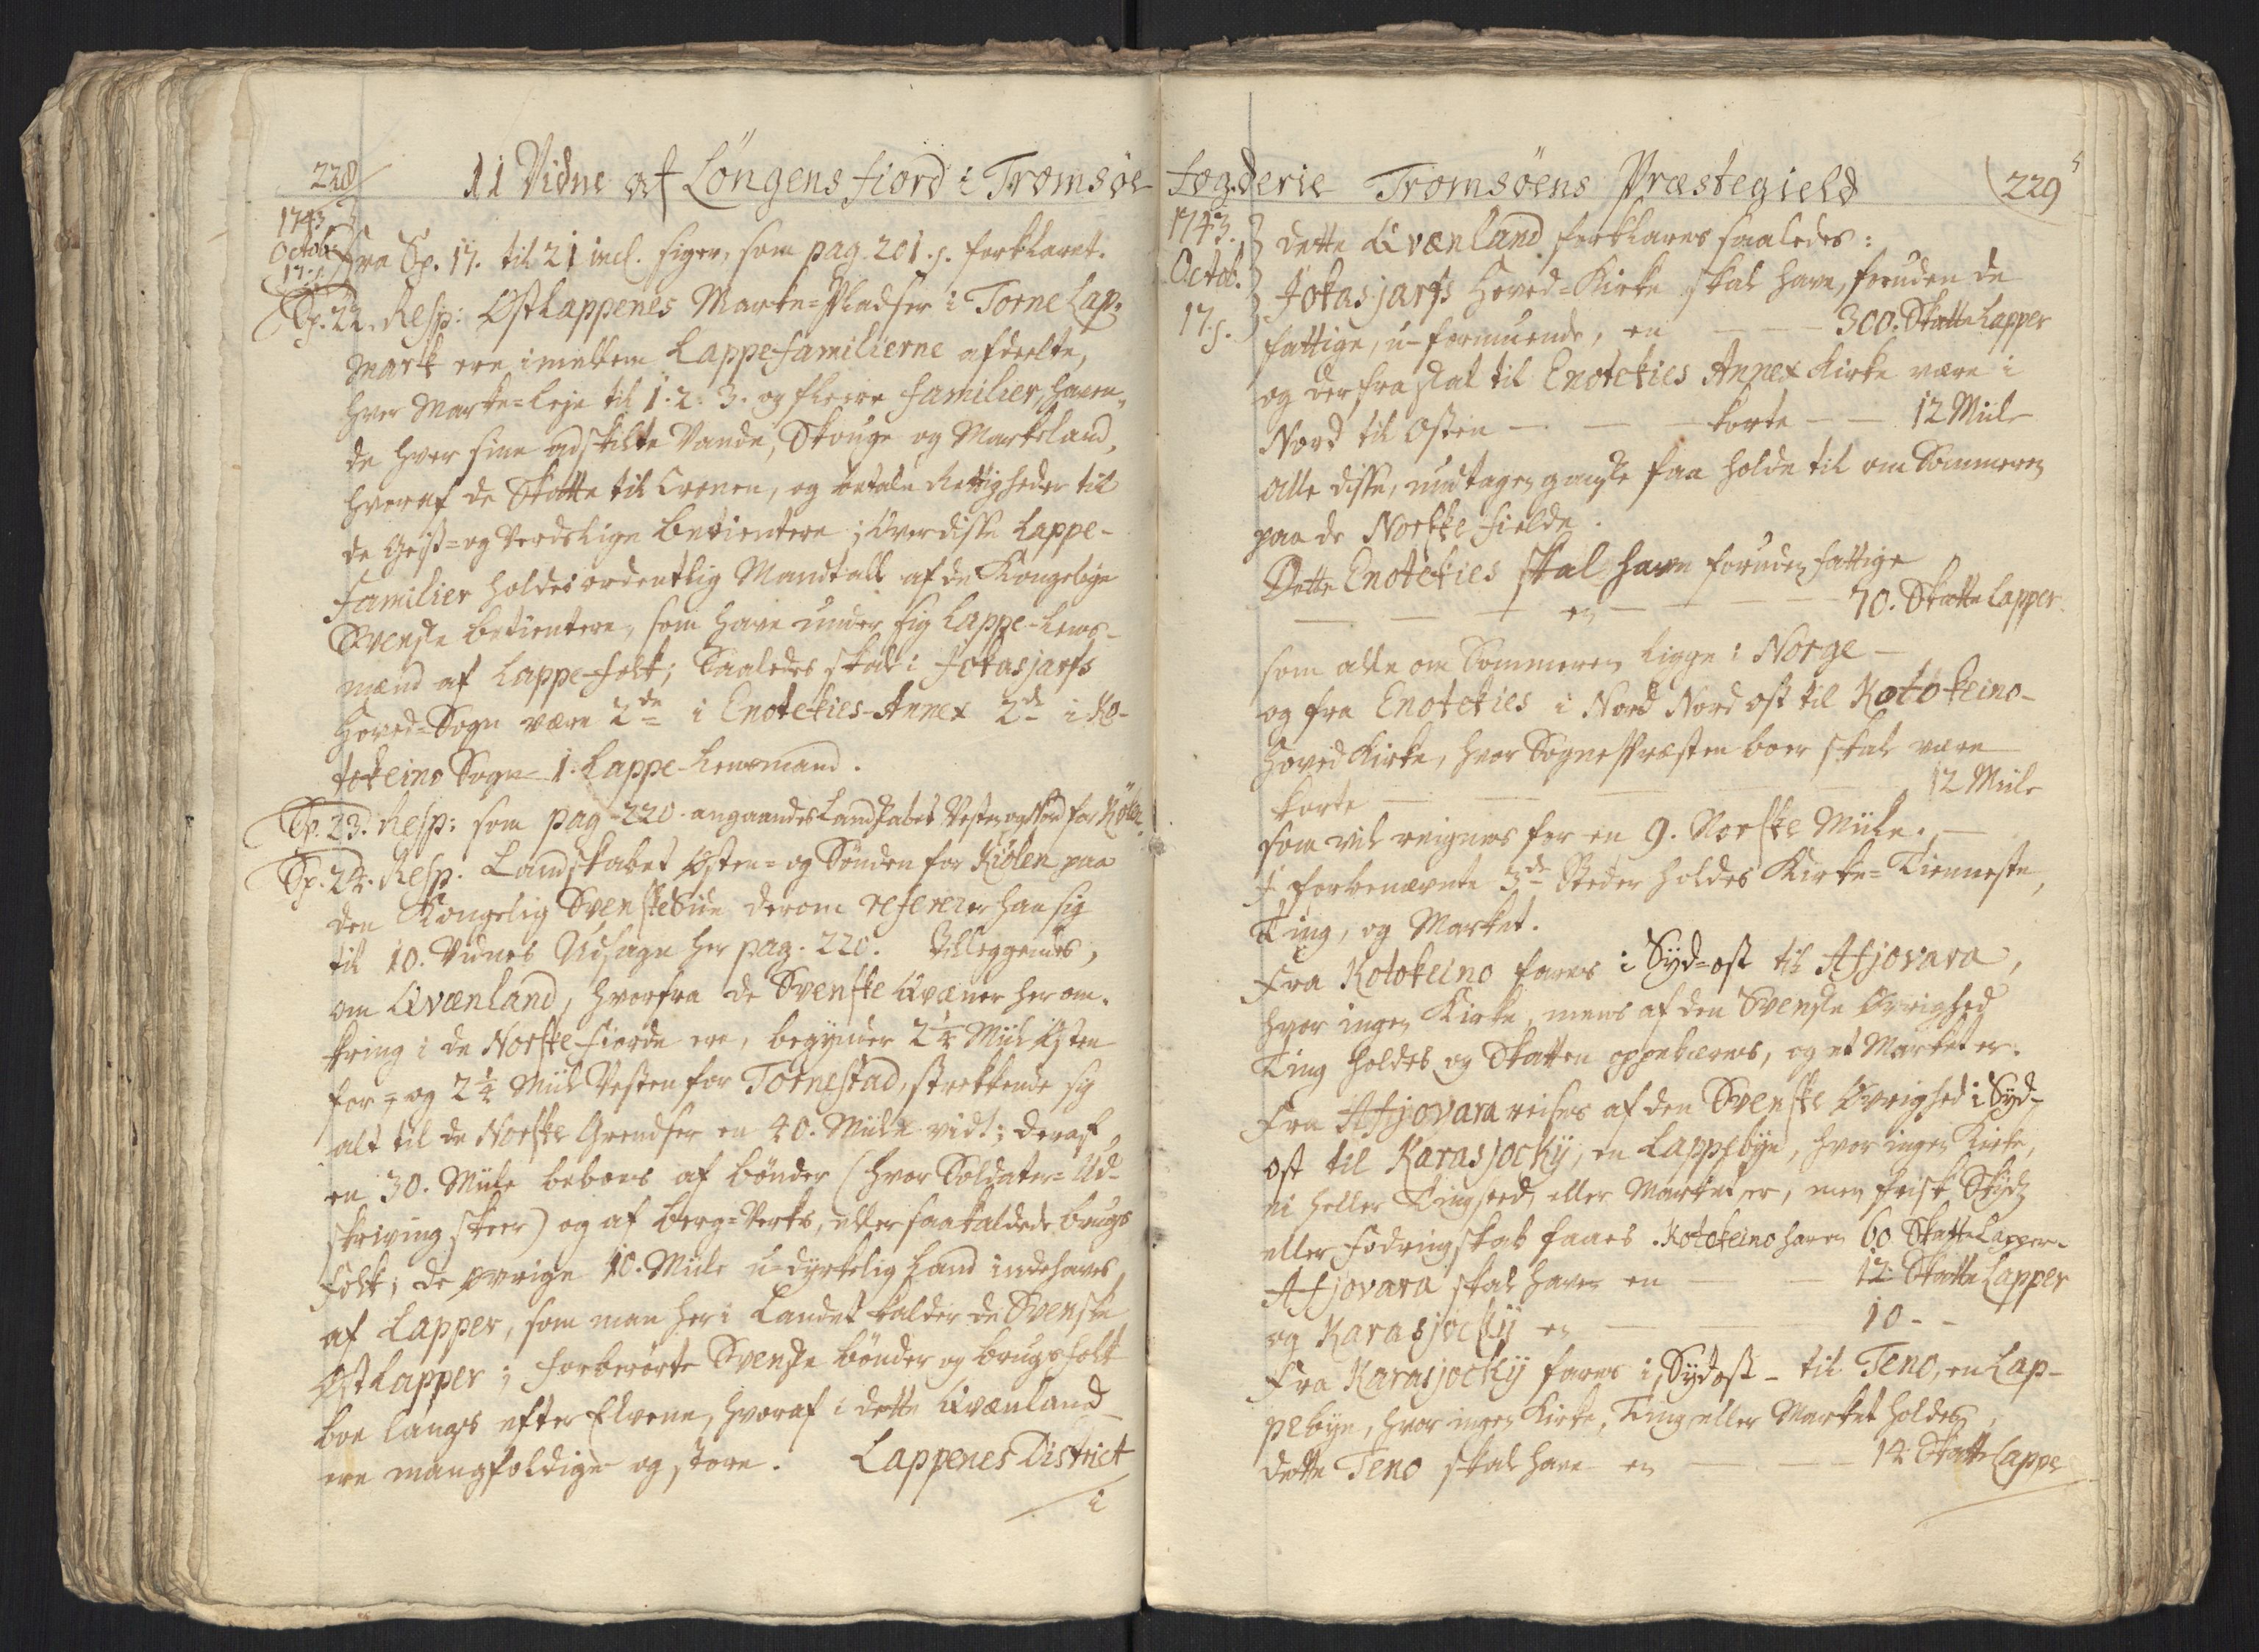 228
11 Vidne af Löngens fiord i Tromsöe
1743
Octob:
17. s.
Fra Sp. 17. til 21 incl. siger, som pag. 201. s. forklaret.
Sp. 22. Resp: Østlappenes Marke-Pladser i Torne Lap-
mark ere imellem Lappefamilierne afdeelte,
hver Marke-Leje til 1. 2. 3. og fleere familier, haven-
de hver sine adskilte Vande, Skouge og Markeland,
hvoraf de Skatte til Cronen, og betale Rettigheder til
de Geist- og Verdslige betientere; Over disse Lappe-
familier holdes ordentlig Mandtall af de Kongelige
Svenske betientere, som have under sig Lappe-Lens-
mænd af Lappe-folk; Saaledes skal i Jokasjarfs
Hoved-Sogn være 2de i Enotekies-Annex 2de i Ko-
tokeino Sogn 1. Lappe-Lensmand.
Sp. 23. Resp: som pag 220. angaaende Landskabet Vesten og Nord for Kölen
Sp. 24. Resp. Landskabet Østen- og Sønden for Kiölen paa
den Kongelig Svenske Side derom refererer han sig
til 10. Vidnes Udsagn her pag. 220. Tilleggendes,
om Qvænland, hvorfra de Svenske Qvæner her om-
kring i de Norske fiorde ere, begynder 2¼ Miil Østen
for- og 2¼ Miil Vesten for Tornestad, strekkende sig
alt til de Norske Grendser en 40. Miile vidt; deraf
en 30. Miile beboes af bønder (hvor Soldater-Ud-
skriving skeer) og af berg-Verks, eller saakaldede brugs
folk; de øvrige 10. Miile u-dyrkelig Land indehaves
af Lapper, som man her i Landet kalder de Svenske
Østlapper; forberørte Svenske bønder og brugsfolk
boe langs efter Elvene, hvoraf i dette Qvænland
ere mangfoldige og store. Lappenes District
i
fogderie Tromsöens Præstegield
229
1743.
Octob.
17. s.
dette Qvænland forklares saaledes:
Jokasjarfs Hoved-Kirke skal have, foruden de
fattige, u-formuende, en — — 300. Skatte Lapper
og derfra skal til Enotekies Annex Kirke være i
Nord til Østen — — — korte — — 12 Miile
alle disse, undtagen ganske faa holde til om Sommeren
paa de Norske fielde.
Dette Enotekies skal have foruden fattige
— — — en — — — 70. Skatte Lapper
som alle om Sommeren ligge i Norge —
og fra Enotekies i Nord Nord ost til Kotokeino-
Hoved Kirke, hvor SognePræsten boer skal være
korte — — — — 12 Miile
som vil reignes for en 9. Norske Miile. —
I forbenævnte 3de Steder holdes Kirke-Tienneste,
Ting, og Market.
Fra Kotokeino fares i Syd-ost til Afjovara,
hvor ingen Kirke, mens af den Svenske Øvrighed
Ting holdes og Skatten oppebæres, og et Market er.
Fra Afjovara reises af den Svenske Øvrighed i Syd-
ost til Karasjockÿ, en Lappebye, hvor ingen Kirke,
ei heller Tingsted, eller Market er, men frisk Skyds
eller fødringskab faaes. Kotokeino haver 60 Skatte Lapper.
Afjovara skal have en — — 12. Skatte Lapper
og Karasjockÿ en — — 10 - -
Fra Karasjockÿ fares i Sydost - til Teno, en Lap-
pebye, hvor ingen Kirke, Ting eller Market holdes,
dette Teno skal have en — — 14. Skatte Lappe